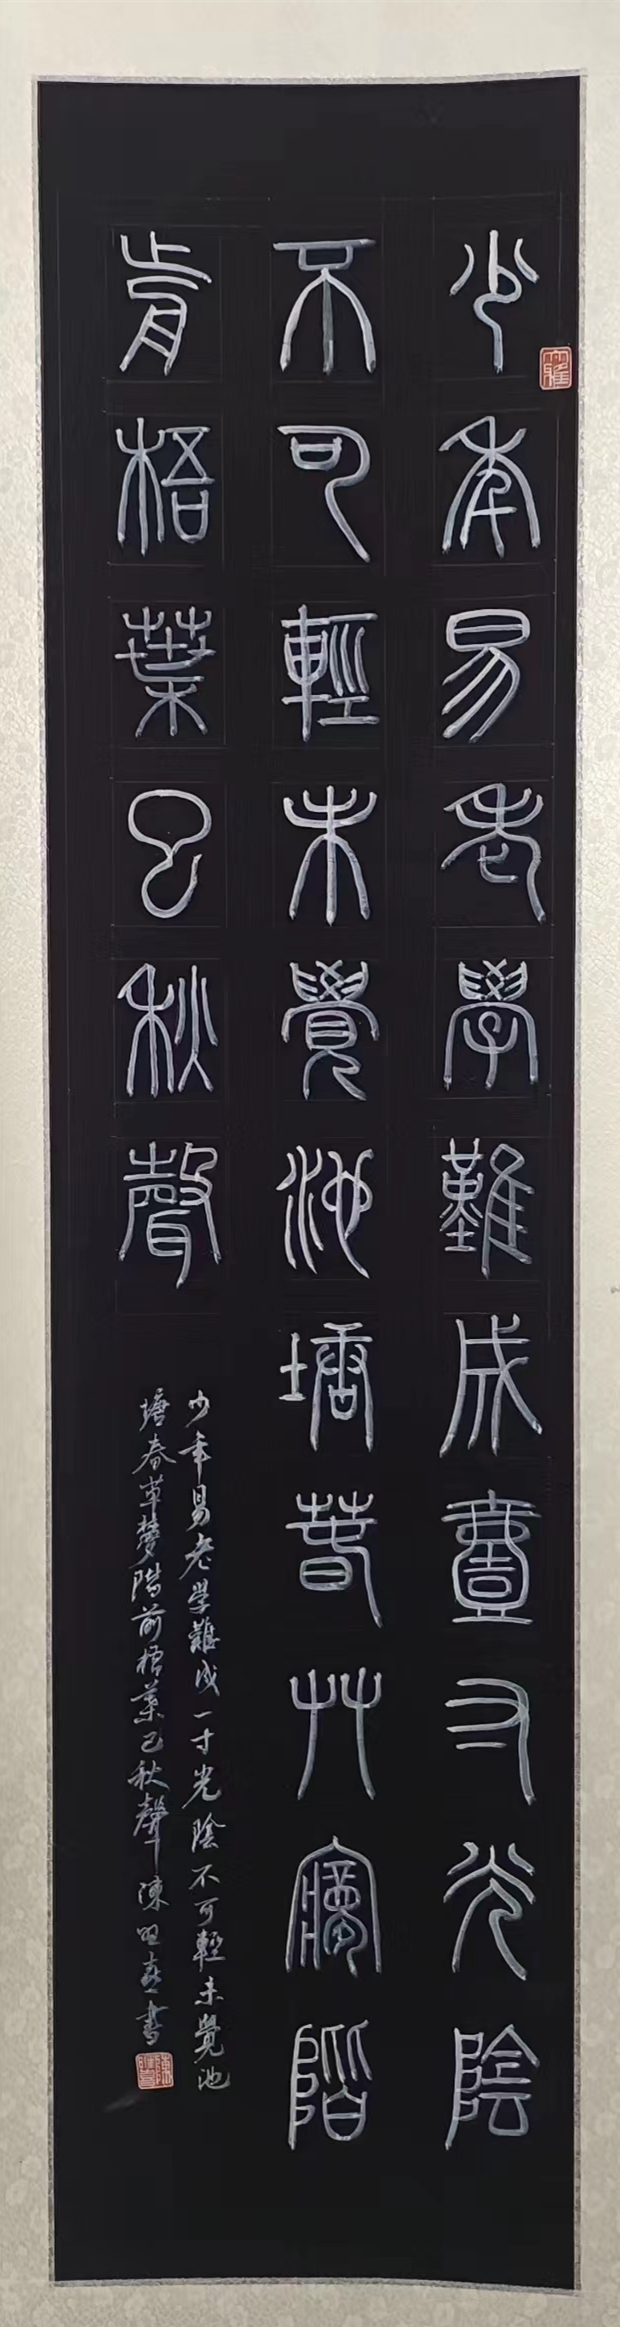 少年易老學難成壹寸光陰
不可輕未覺池塘春艸夢階
前梧葉已秋聲
少年易老学難成一寸光陰不可輕未覺池
塘春草夢階前梧葉已秋聲 陳明書